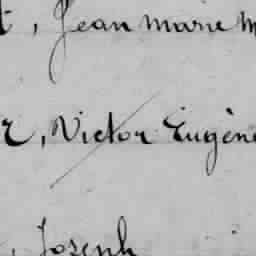 t, Jean Marie M
r, Victor Eugène
, Joseph